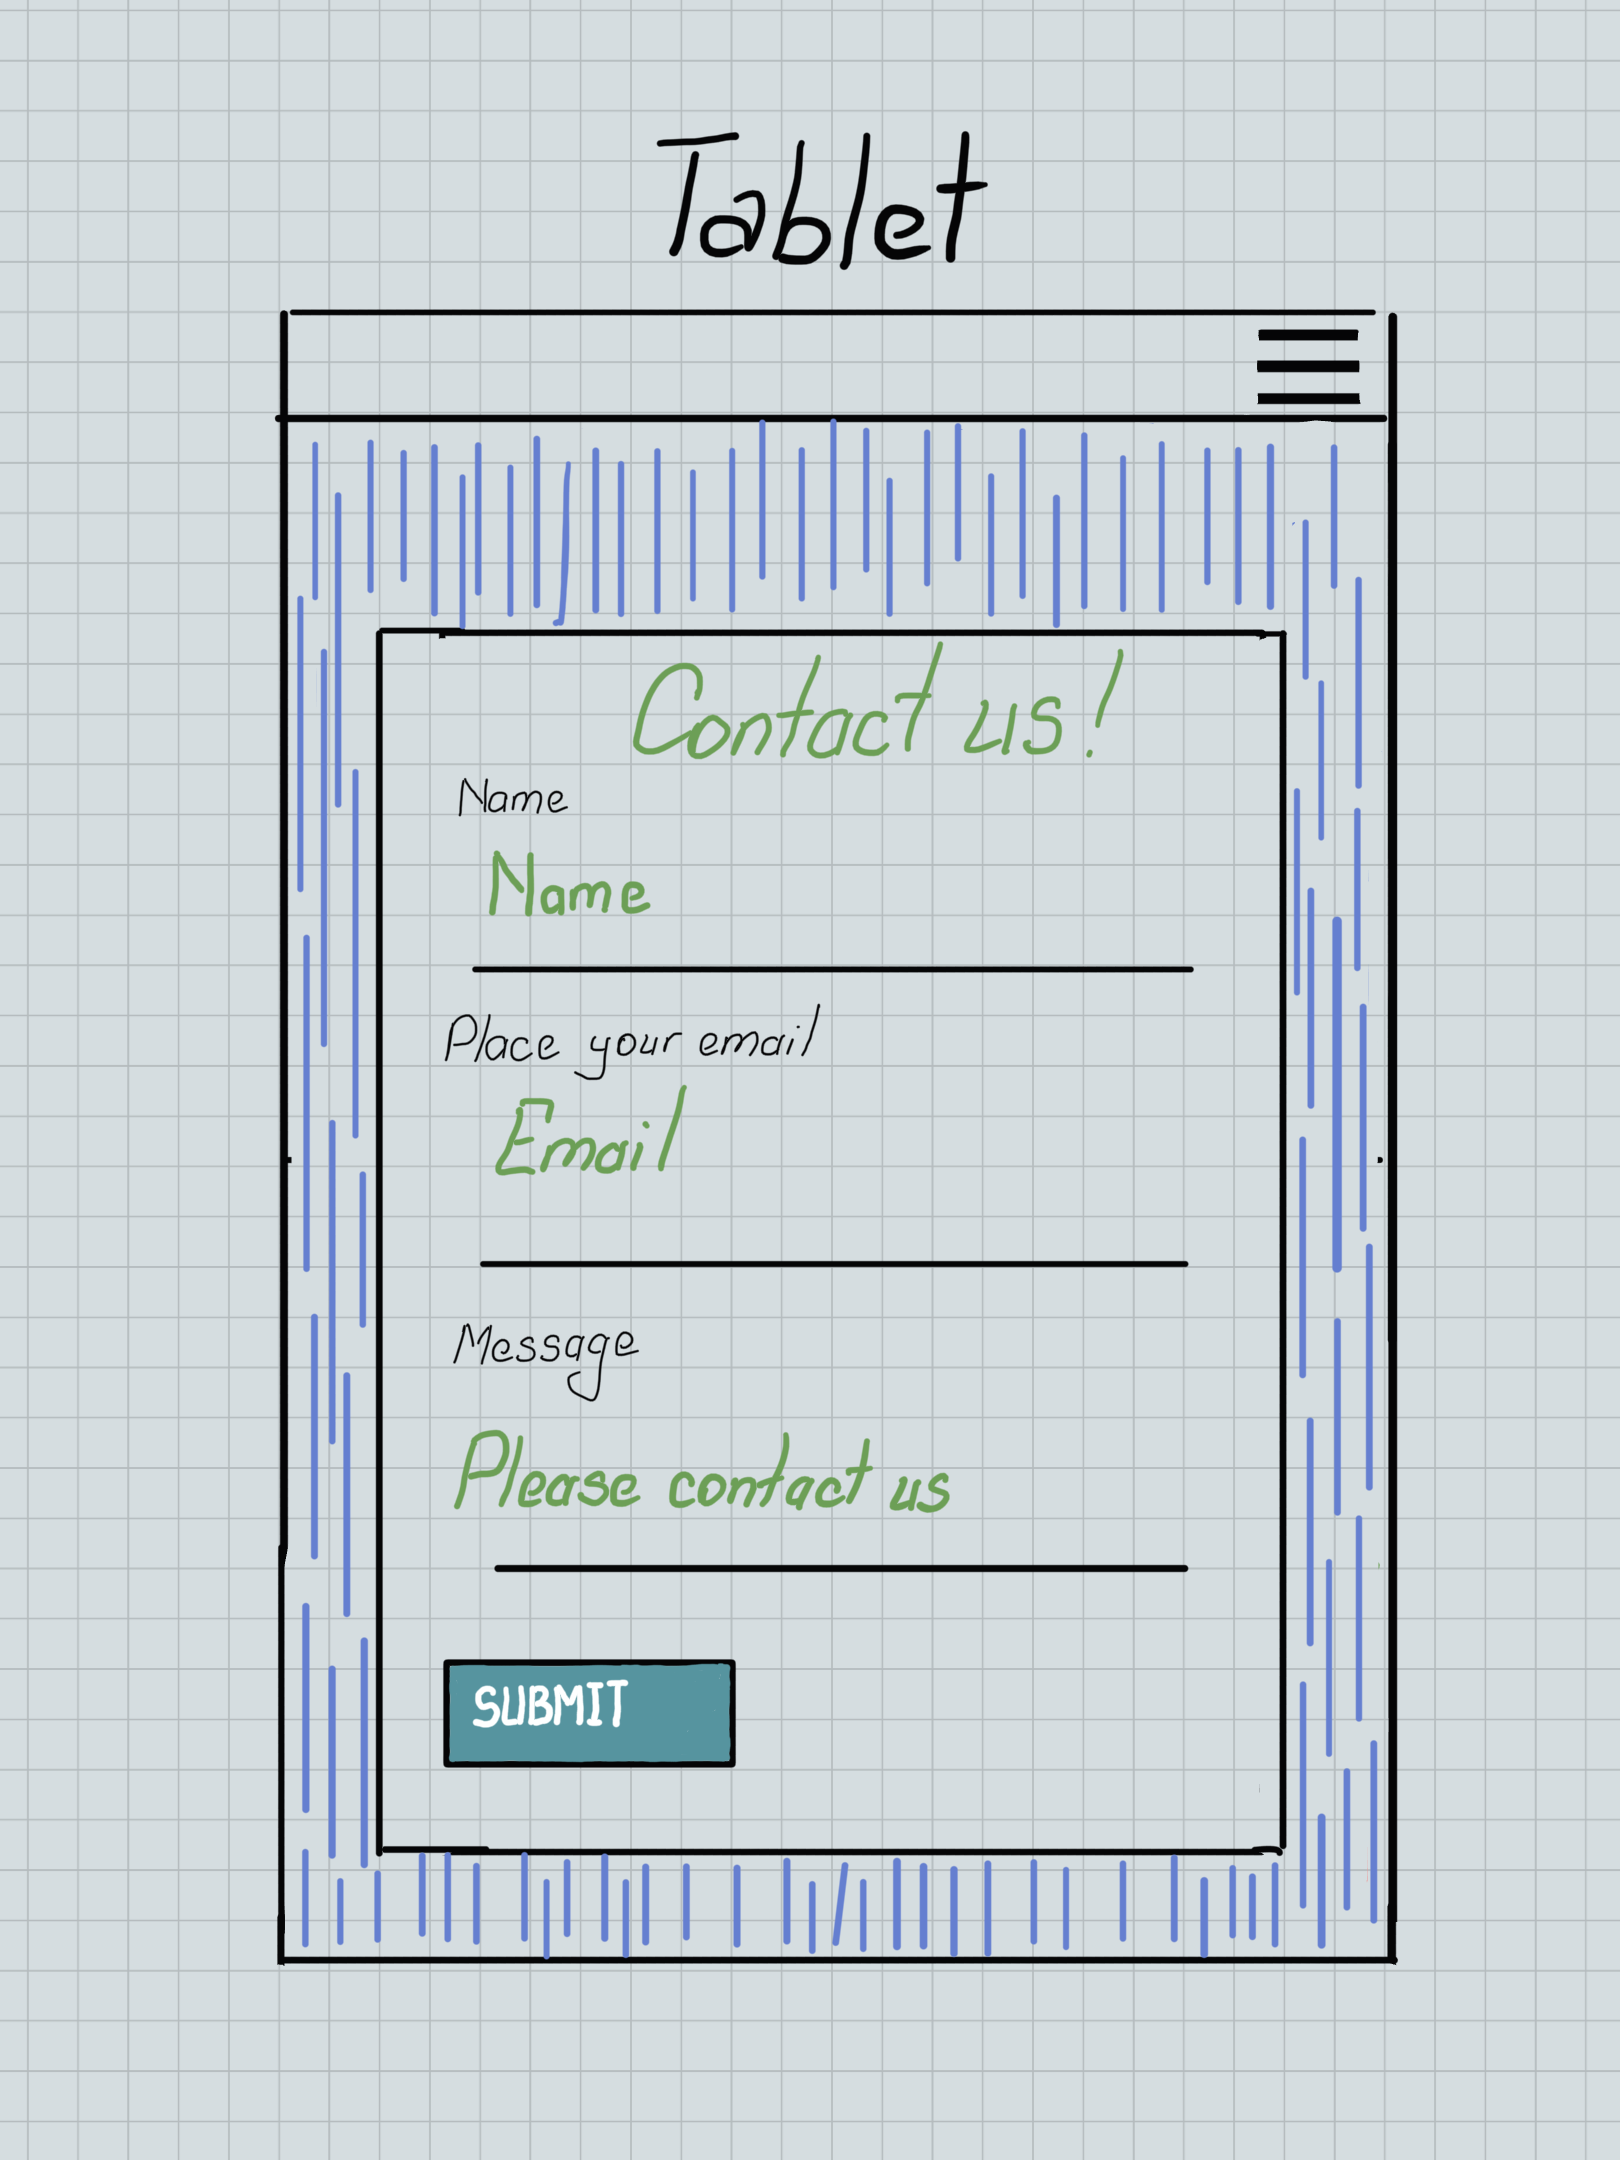 Tablet
Contact us!
Name
Name
Place your email
Email
Message
Please contact us
SUBMIT